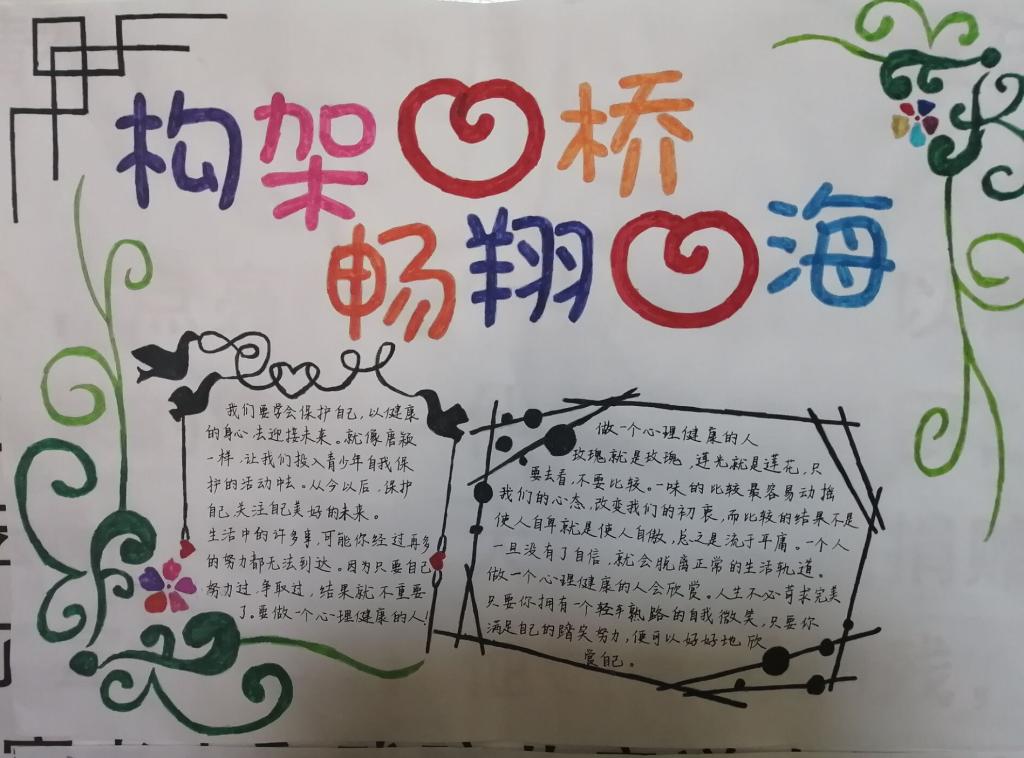 构架桥
畅翔海
我们要学会保护自己，以健康
的身心去迎接未来。就像唐颖
一样，让我们投入青少年自我保
护的活动中去。从今以后，保护
自己，关注自己美好的未来。
生活中的许多事，可能你经过再多
的努力都无法到达。因为只要自己
努力过，争取过，结果就不重要
了。要做一个心理健康的人！
做一个心理健康的人
玫瑰就是玫瑰，莲光就是莲花，只
要去看，不要比较。一味的比较最容易动摇
我们的心态，改变我们的初衷，而比较的结果不是
使人自卑就是使人自傲，总之是流于平庸。一个人
一旦没有了自信，就会脱离正常的生活轨道。
做一个心理健康的人会欣赏。人生不必苛求完美
只要你拥有一个轻车熟路的自我微笑，只要你
满足自己的踏实努力，便可以好好地欣
赏自己。